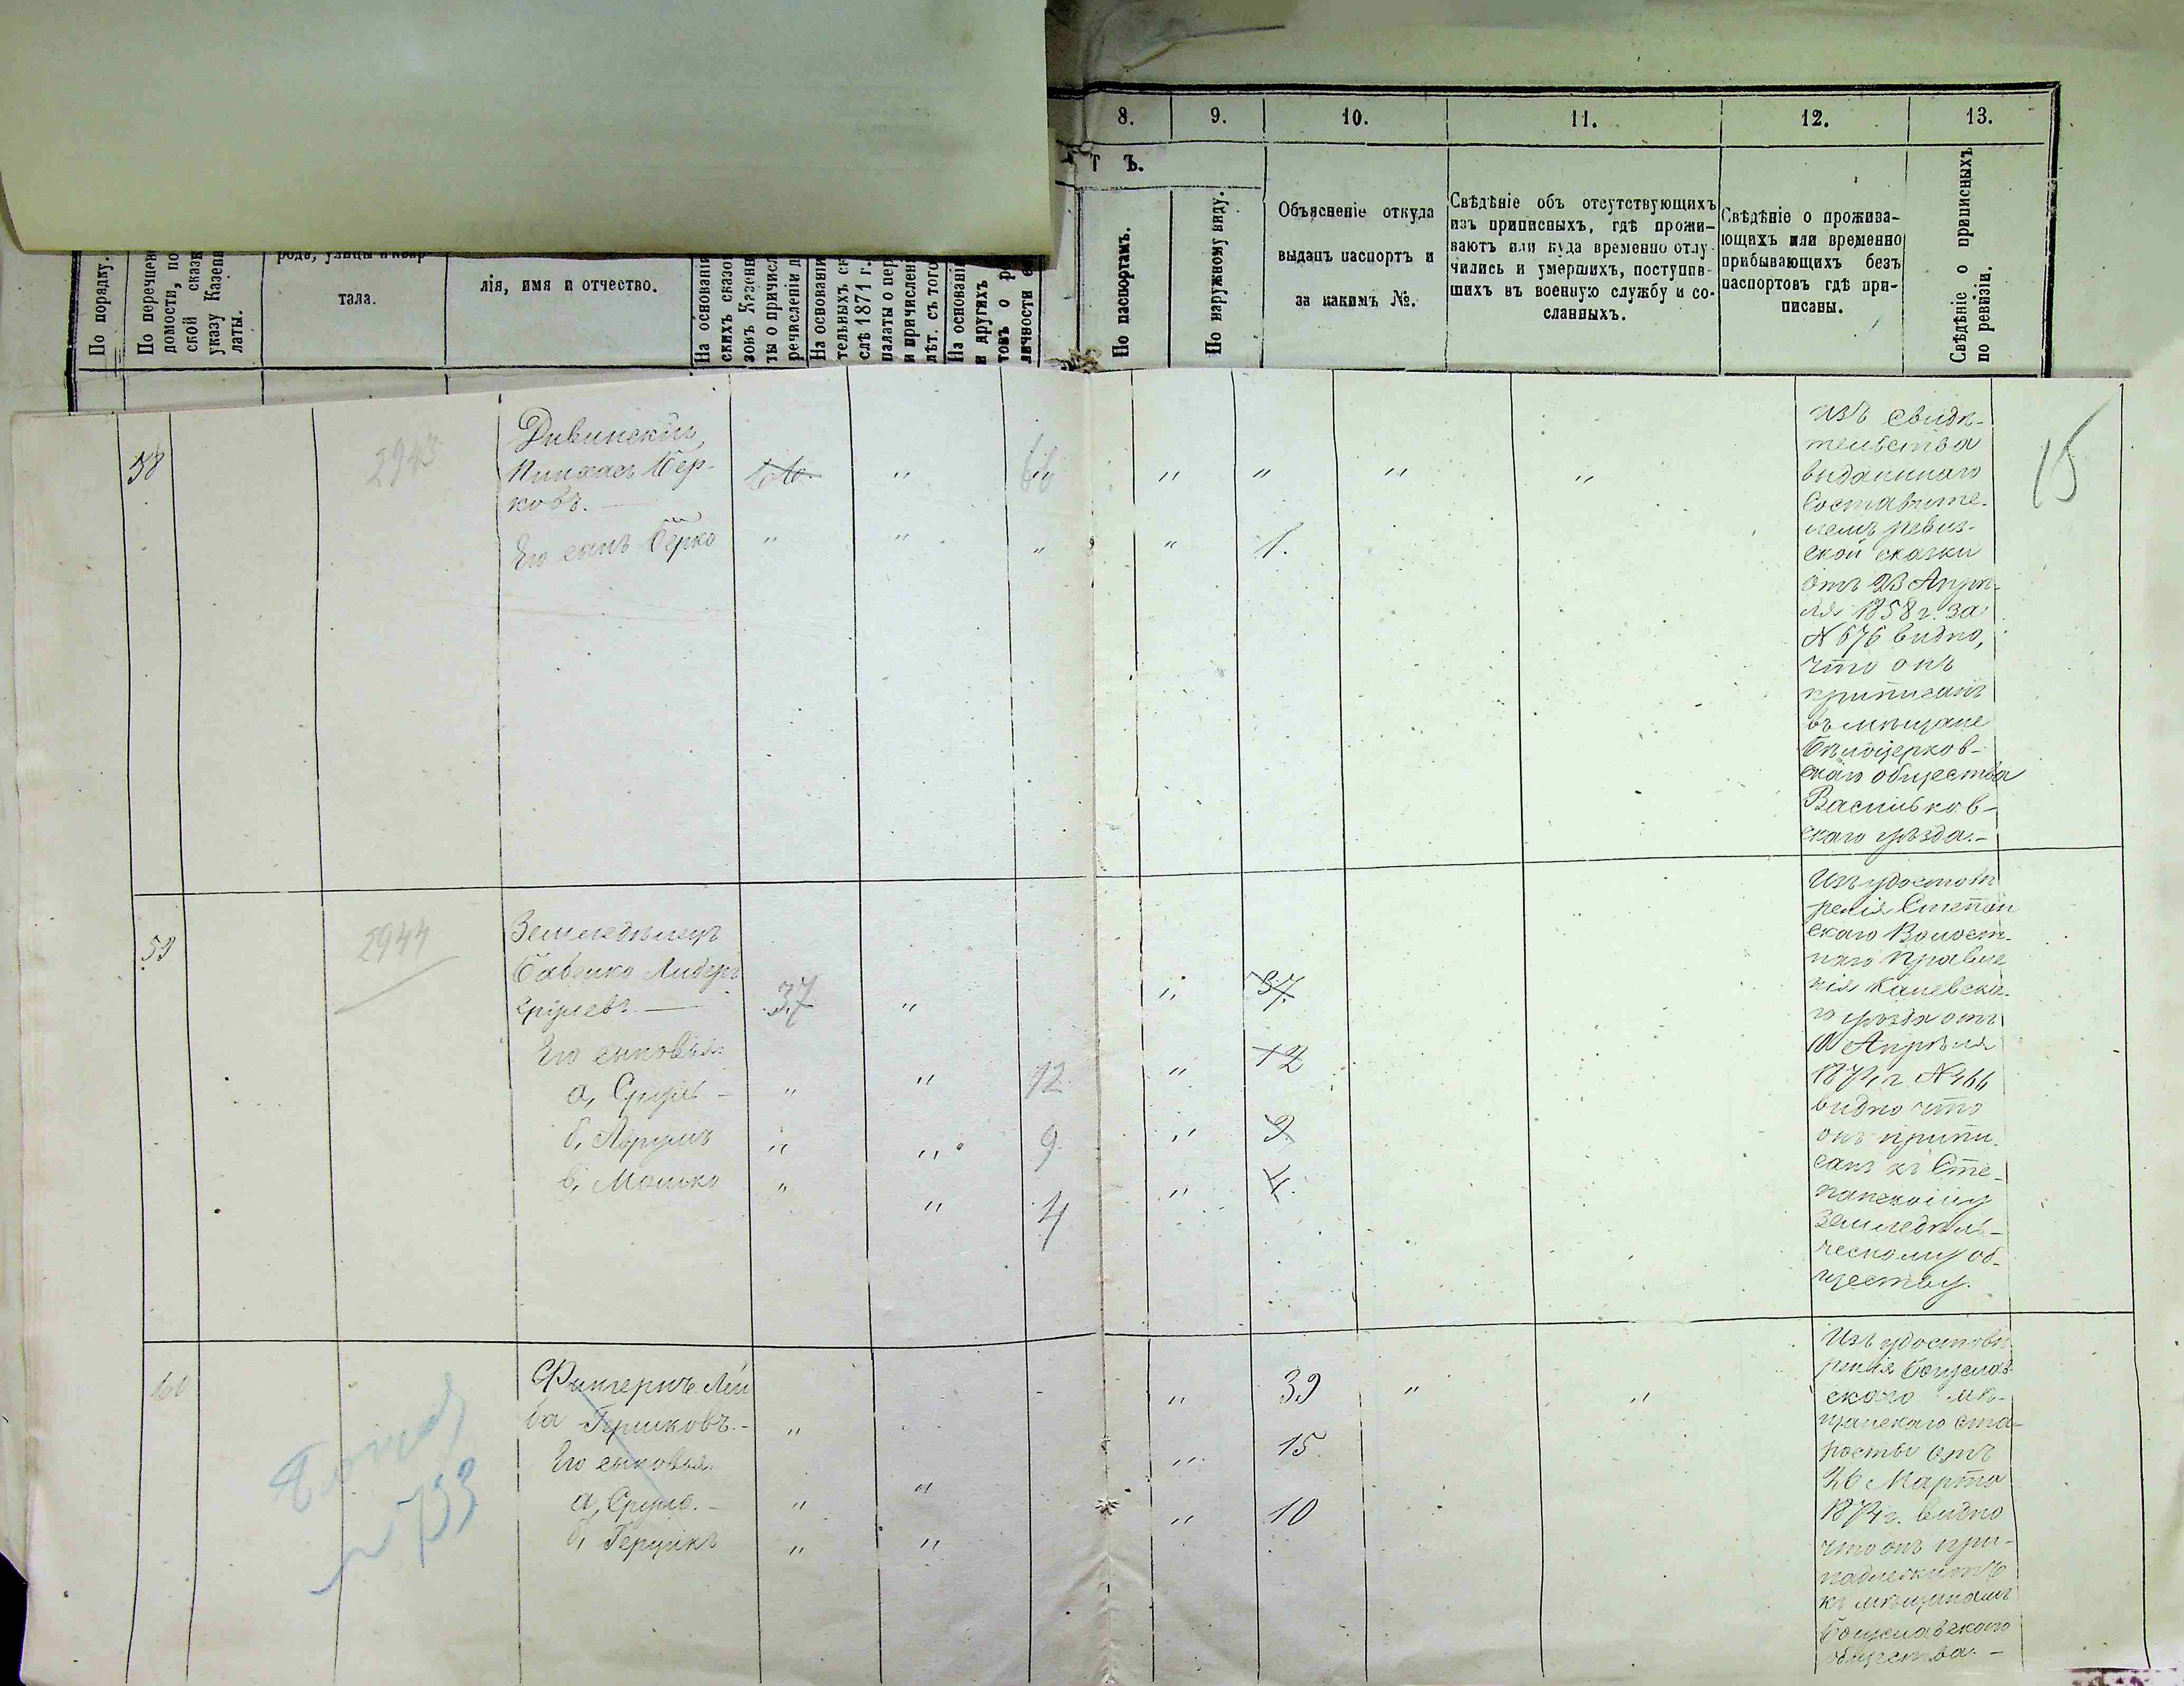 8. 9. 10. 11. 12. 13.
Т Ъ.
По порядку.
По перечнев
домости, по
ской сказк
указу Казен
латы.
рода, улицы и квар
тала.
лія, имя и отчество.
На основаніи
скихъ сказо
зонъ Казенн
ты о причисл
речисленіи д
На основаніи
тельныхъ ск
слѣ 1871 г.
палаты о пер
и причислені
лѣт. съ того
На основаніи
и другихъ
товъ о р
личности е
По паспортамъ.
По наружному виду.
Объясненіе откуда
выданъ паспортъ и
за какимъ №.
Свѣдѣніе объ отсутствующихъ
изъ приписныхъ, гдѣ прожи-
ваютъ или куда временно отлу-
чились и умершихъ, поступив-
шихъ въ военную службу и со-
сланныхъ.
Свѣдѣніе о прожива-
ющихъ или временно
прибывающихъ безъ
паспортовъ гдѣ при-
писаны.
Свѣдѣніе о приписныхъ
по ревизіи.
58 2943
Дивинскій
Пинхасъ Бер-
ковъ. — 66
Его сынъ Берко 1.
изъ свидѣ-
тельства
выданнаго
Составите-
лемъ ревиз-
ской сказки
отъ 23 Апрѣ-
ля 1858 г. за
№ 676 видно,
что онъ
приписанъ
въ мѣщане
Бѣлоцерков-
скаго общества
Васильков-
скаго уѣзда. —
15
59 2944
Земледѣлецъ
Бабенко Либеръ
Срулевъ. — 37 37.
Его сыновья:
а, Сруль — 12 12
б, Абрумъ 9 9.
в, Мошко 4 4.
Изъ удостовѣ
ренія Степан
скаго Волост-
наго Правле
нія Каневска-
го уѣзда отъ
10 Апрѣля
1874 г. № 466
видно что
онъ припи-
санъ къ Сте-
панскому
Земледѣль-
ческому об-
ществу.
60
№ 733
Фингеритъ Лей
ба Гершковъ. — 39
Его сыновья. 15
а, Сруль. — 10
б, Гершкъ
Изъ удостовѣ
ренія Богуслав
скаго мѣ-
щанскаго ста-
росты отъ
26 Марта
1874 г. видно
что онъ при-
надлежитъ
къ мѣщанамъ
Богуславскаго
общества. —